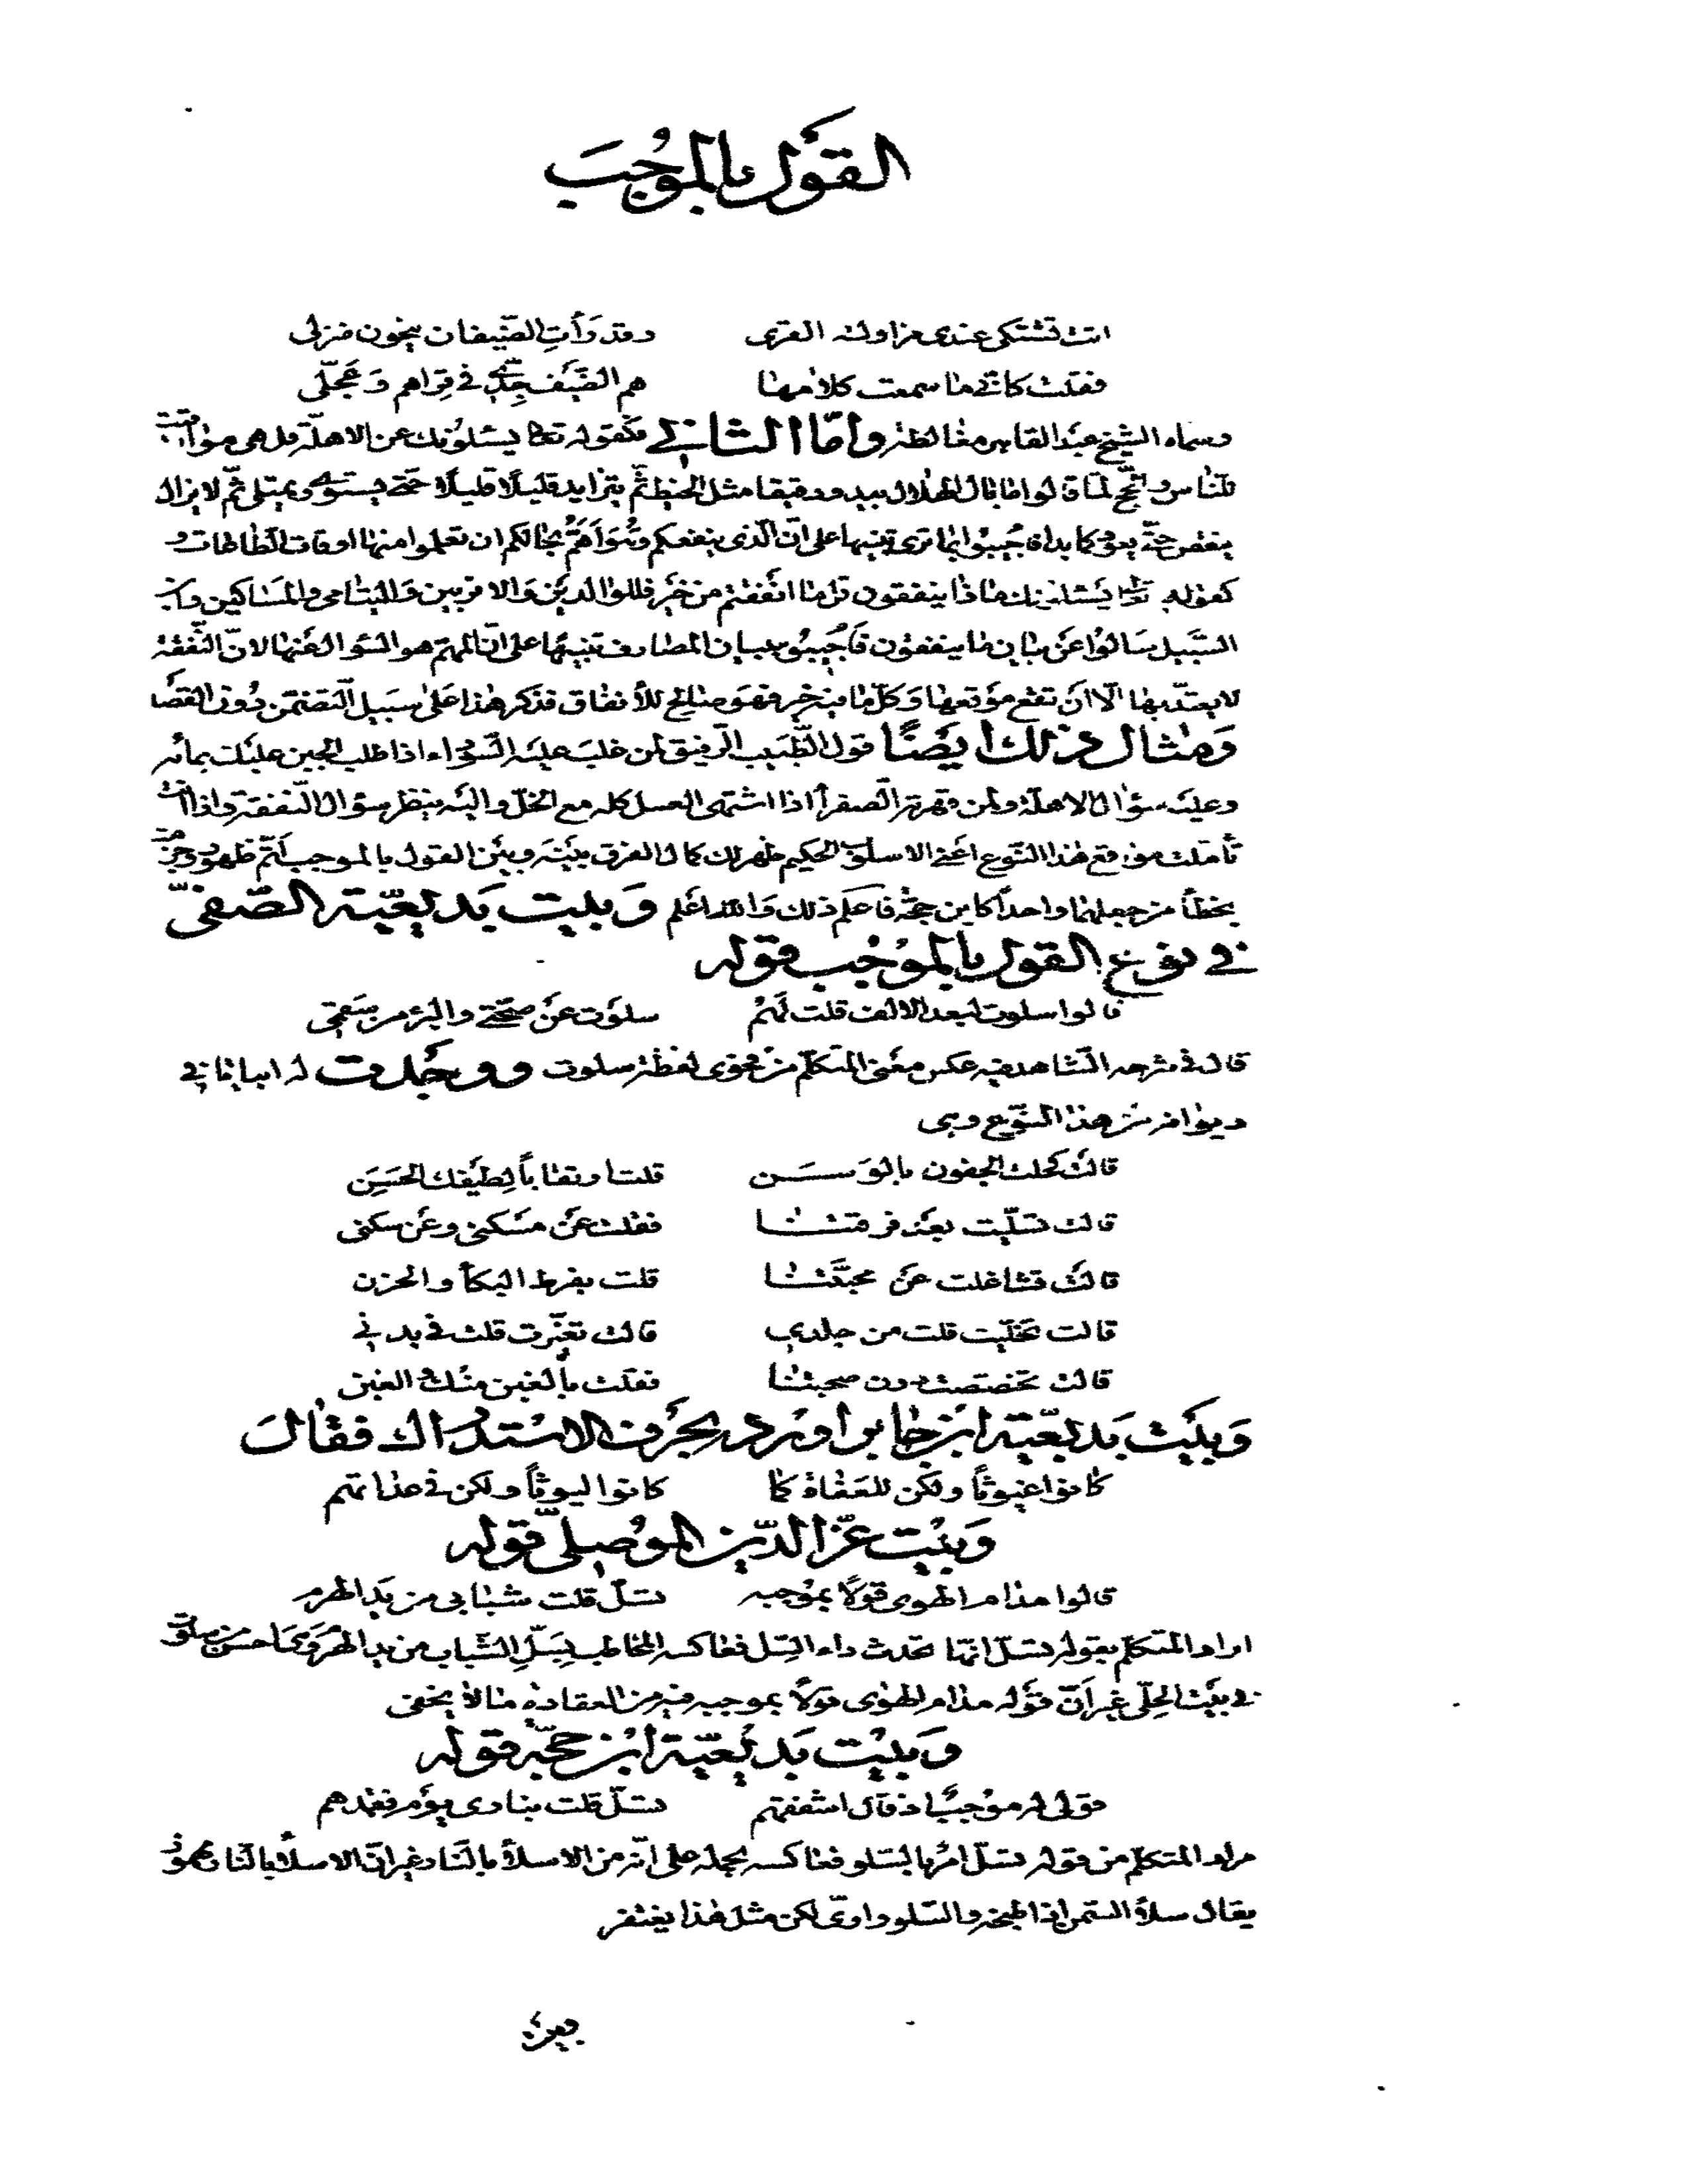 القول بالموجب
اتت تشتكي عندي مزاولة القرى وقد رأت الضيفان ينحون منزلي
فقلت كاني ما سمعت كلامها هم الضيف جدي في قراهم وعجلي
وسماه الشيخ عبد القاهر مغالطة واما الثاني فكقوله تعا يسئلونك عن الاهلة قل هي مواقيت
للناس والحج لما قالوا ما بال الهلال يبدو دقيقا مثل الخيط ثم يتزايد قليلا قليلا حتى يستوي ويمتلي ثم لا يزال
ينقص حتى يعود كما بدا فاجيبوا بما ترى تنبيها على ان الذي ينفعكم وهو اهم بحالكم ان تعلموا منها اوقات الطاعات و
كقوله تعا يسئلونك ماذا ينفقون قل ما انفقتم من خير فللوالدين والاقربين واليتامى والمساكين وابن
السبيل سالوا عن بيان ما ينفقون فاجيبوا ببيان المصارف تنبيها على ان المهم هو السؤال عنها لان النفقة
لا يعتد بها الا ان تقع موقعها وكل ما فيه خير فهو صالح للانفاق فذكر هذا على سبيل التضمن دون القصد
ومثال ذلك ايضا قول الطبيب الرفيق لمن غلبت عليه السوداء اذا طلب الجبن عليك بمائه
وعليه سؤال الاهلة ولمن قهرته الصفرأ اذا اشتهى العسل كله مع الخل واليه ينظر سؤال النفقة واذا انت
تأملت موقع هذا النوع اعني الاسلوب الحكيم ظهر لك كمال الفرق بينه وبين القول بالموجب اتم ظهور وجزمت
بخطأ من جعلهما واحدا كابن حجة فاعلم ذلك والله اعلم وبيت بديعية الصفي
في نوع القول بالموجب قوله
قالوا سلوت لبعد الالف قلت لهم سلوت عن صحتي والبرء من سقمي
قال في شرحه الشاهد فيه عكس معنى المتكلم من فحوى لفظة سلوت ووجدت له ابياتا في
ديوانه من هذا النوع وهي
قالت كحلت الجفون بالوسن قلت ارتقابا لطيفك الحسن
قالت تسليت بعد فرقتنا فقلت عن مسكني وعن سكني
قالت تشاغلت عن محبتنا قلت بفرط البكأ والحزن
قالت تخليت قلت من جلدي قالت تغيرت قلت في بدني
قالت تخصصت دون صحبتنا فقلت بالغبن منك والغبن
وبيت بديعية ابن جابر اورده بحرف الاستدراك فقال
كانوا غيوثا ولكن للعفاة كما كانوا ليوثا ولكن في عداتهم
وبيت عز الدين الموصلي قوله
قالوا مدام الهوى قولا بموجبه تسل قلت شبابي من يد الهرم
اراد المتكلم بقوله تسل انها تحدث داء السل فعاكسه المخاطب بسل الشباب من يد الهرم وما احسن من سلوت
في بيت الحلي غير ان قوله مدام الهوى قولا بموجبه فيه من العقادة ما لا يخفى
وبيت بديعية ابن حجة قوله
قولي له موجب اذ قال اشفقهم تسل قلت بنادي يوم فقدهم
مراد المتكلم من قوله تسل امر بالسلو فعاكسه بحمله على انه من الاسلأ بالنار غير ان الاسلأ بالنار مهموز
يقال سلأ السمن اذا طبخه والسلو واوي لكن مثل هذا يغتفر